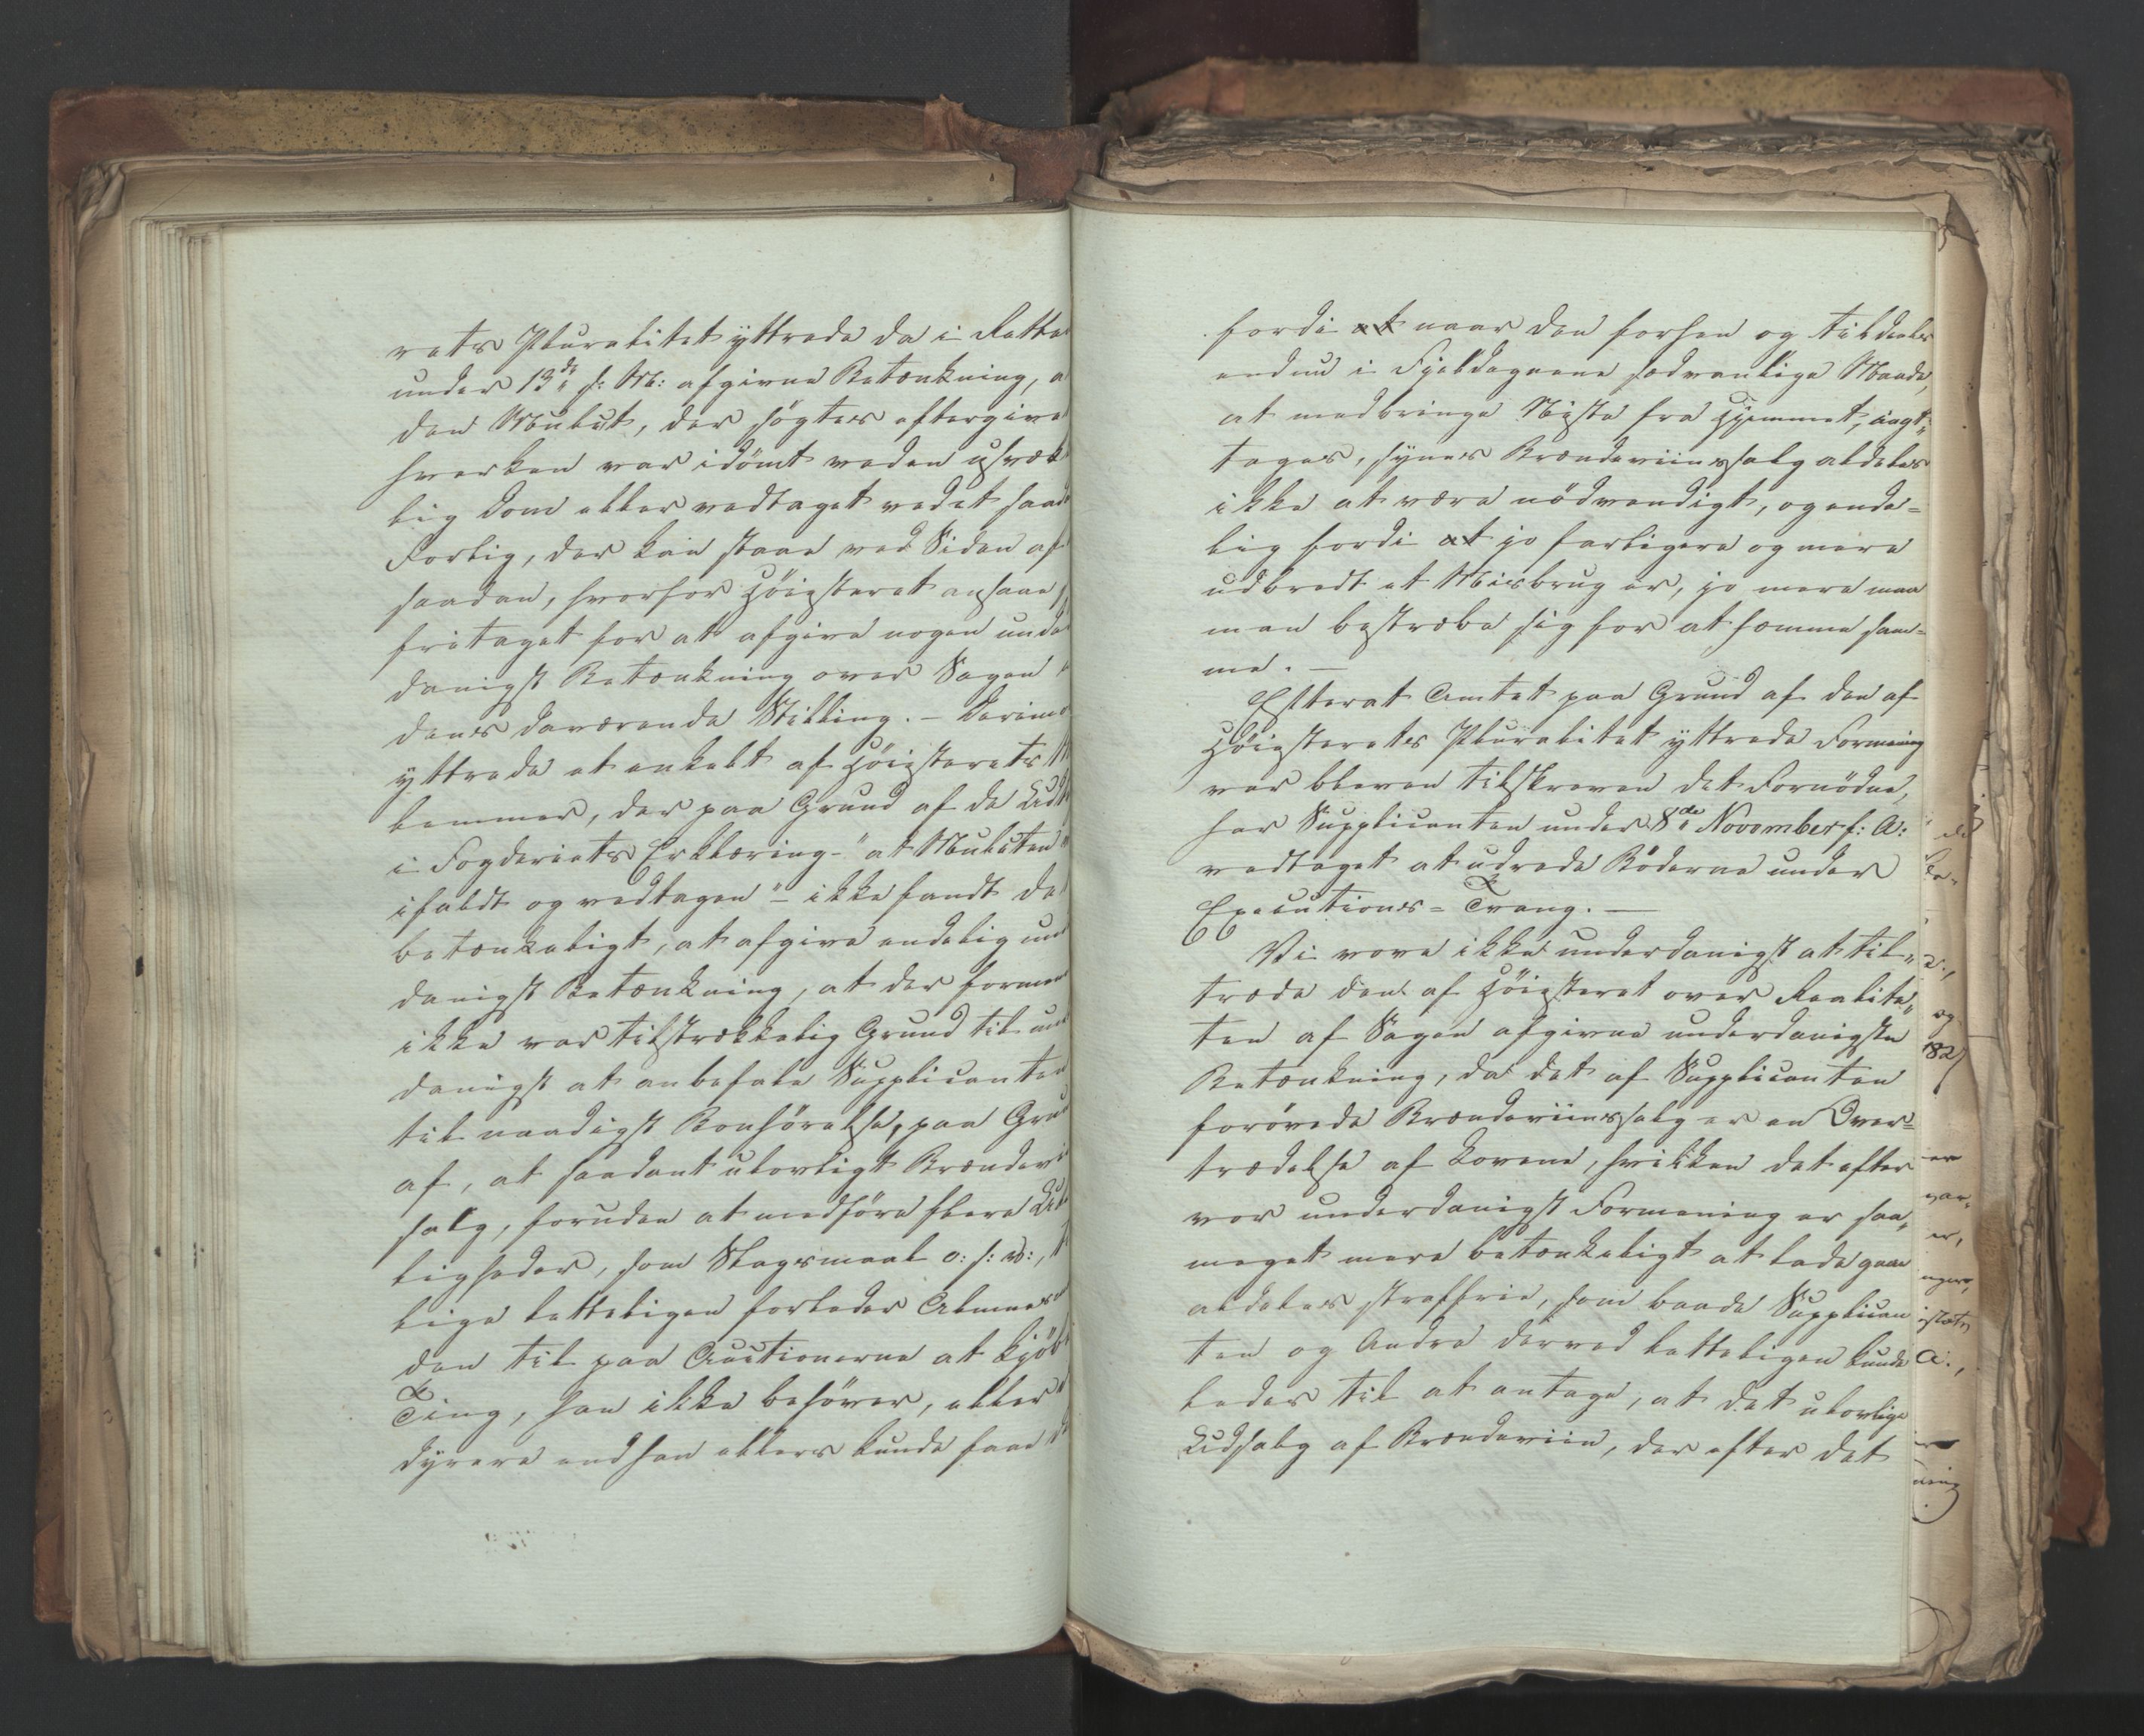 rets Pluralitet yttrede da i Rette
under 13de s: M: afgivne Betænkning, a
den Mulct, der søgtes eftergive
hverken var idømt veden upvæk
lig Dom eller vedtaget vedet saad
Forlig, der kan staae ved Siden af
saadan, hvorfor Høiesteret ansaae
fritaget for at afgive nogen unde
danigst Betænkning over Sagen
denes daværende Stilling. – Derimo
yttrede et enkelt af Høiesterets M
lemmer, der paa Grund af de Udt
i Fogderiets Erklæring – "at Mulcten
ifaldt og vedtagen" – ikke fandt de
betænkeligt, at afgive endelig und
danigst Betænkning, at der formee
ikke var tilstrækkelig Grund til und
danigst at anbefale Supplicanten
til naadigst Bønhørelse, paa Gru
af, at saadant ulovligt Brændevi
salg, foruden at medføre flere Ul
ligheder, som Slagsmaal o: s: v:,
lige letteligen forleder Almues
den til paa Auctionerne at kjøb
Ting, han ikke behøver, eller
dyrere end han ellers kunde faae d
fordi at naar den forhen og tildeels
endnu i Fjeldegnene sædvanlige Maade,
at medbringe Niste fra Hjemmet, iagt-
tages, synes Brændeviinssalg aldeles
ikke at være nødvendigt, og ende=
lig fordi at jo farligere og mere
udbredt et Misbrug er, jo mere maa
man bestræbe sig for at hæmme sam=
me. —
Efterat Amtet paa Grund af den af
Høiesterets Pluralitet yttrede Formening
var bleven tilskreven det Fornødne,
har Supplicanten under 8de November f: A:
vedtaget at udrede Bøderne under
Executions=Tvang. —
Vi vove ikke underdanigst at til-
træde den af Høiesteret over Realite-
ten af Sagen afgivne underdanigste
Betænkning, da det af Supplicanten
forøvede Brændeviinssalg er en Over=
trædelse af Lovene, hvilken det efter
vor underdanigst Formening er saa-
meget mere betænkeligt at lade gaae
aldeles straffrie, som baade Supplican
ten og Andre derved letteligen kunde
ledes til at antage, at det ulovlige
Udsalg af Brændeviin, der efter det